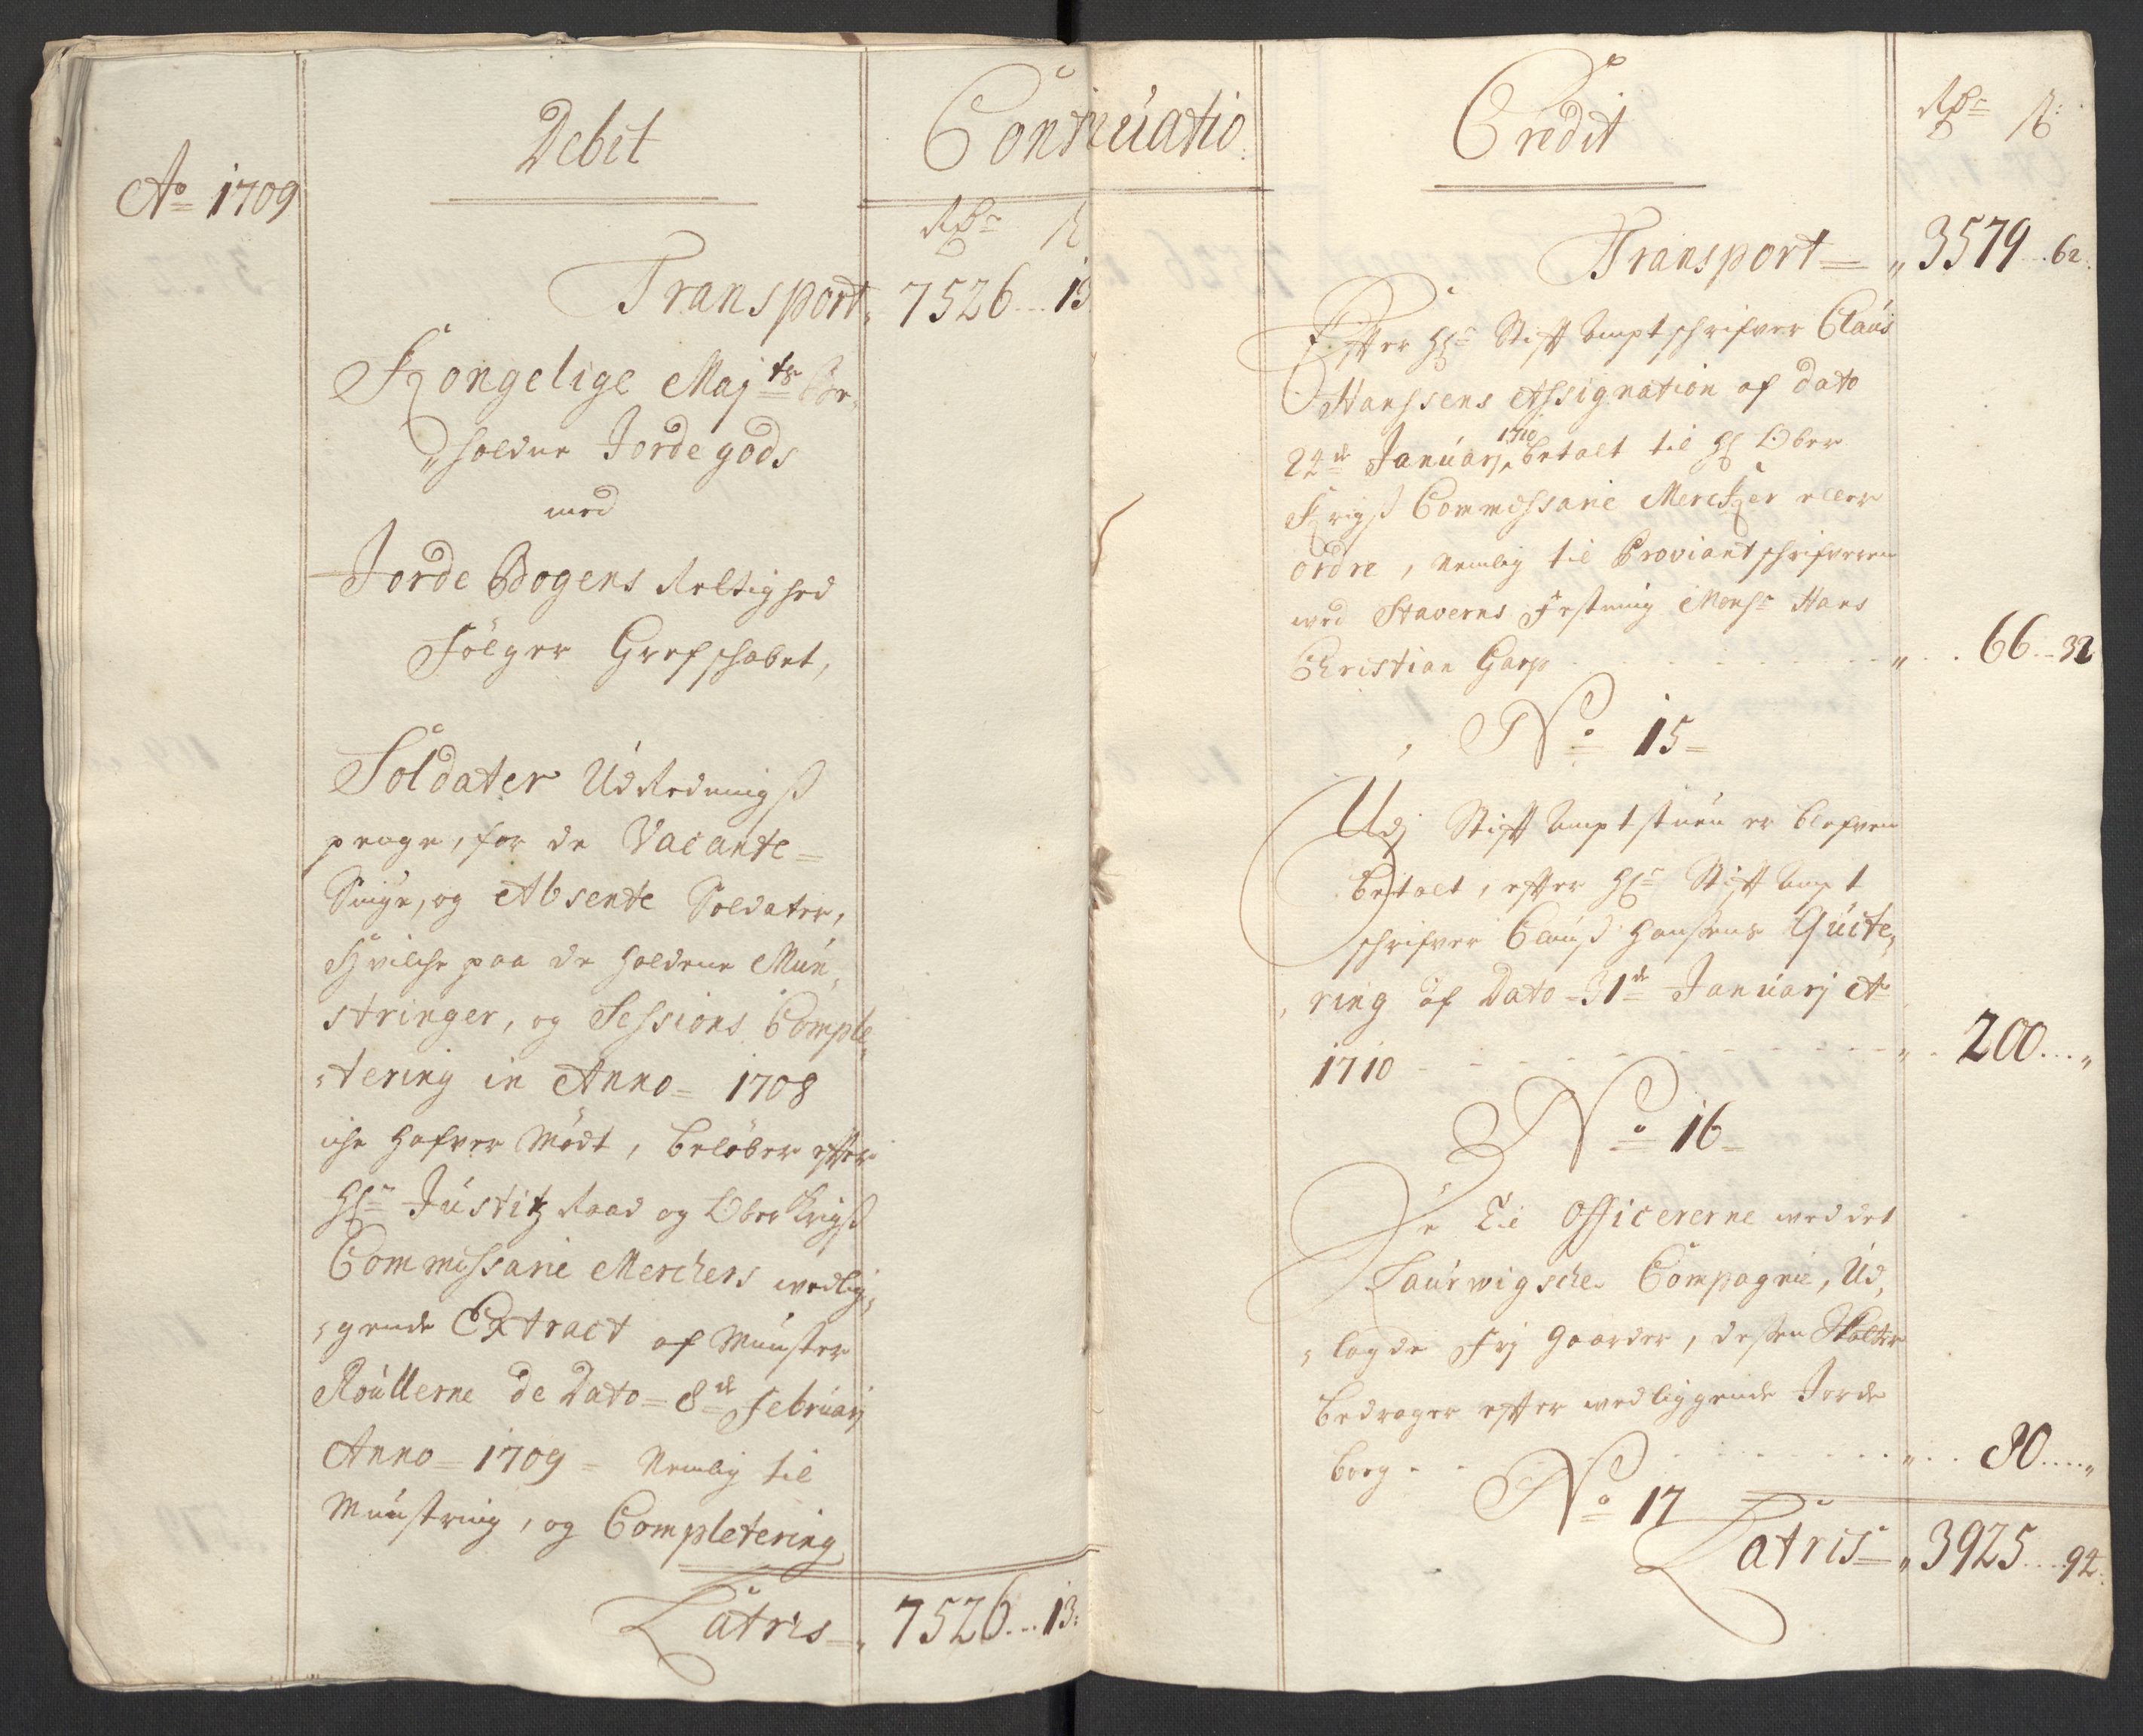 Debet
Continuatio
Ao 1709
Rdr ß
Transport, 7526 13
Kongelige Majts Be-
holdne Jordegods
med
Jorde Bogens Rettighed
Følger Grefschabet,
Soldater UdRednings
penge, for de Vacante
Svige, og Absente Soldater,
Hvilche paa de holdene Mún-
stringer, og Sessions Comple-
tering in Anno 1708
iche hafver Mødt, beløber efter
Hr Justitz Raad og Ober Krigs
Commissarie Merchers vedlig-
gende Extract af Mynster
Roullerne de Dato 8de Februarj
Anno 1709 Nemlig til
Munstring, og Completering
Latris 7526 13
Credit
Rdr ß
Transport 3579 62
Efter Hr Stift Ampt schrifver Claus
Hanssens Assignation af Dato
24de Januarj 1710 betalt til Hr Ober
Krigs Commissarie Mercker eller
ordre, Nemlig til Proviantschrifveren
ved Staverns Festning Monsr Hans
Christian Garp 66 32
No 15
Udj Stift Amptstuen er blefven
betalt, efter Hr Stift Ampt
schrifver Clauss Hanssens Quite-
ring af Dato 31de Januarj Ao
1710 200
No 16
De Til Officererne ved det
Laurwigsche Compagnie, Ud-
lagde Frj Gaarder, dessen Skatter
bedrager efter vedliggende Jorde
bog 80
No 17
Latris 3925 94